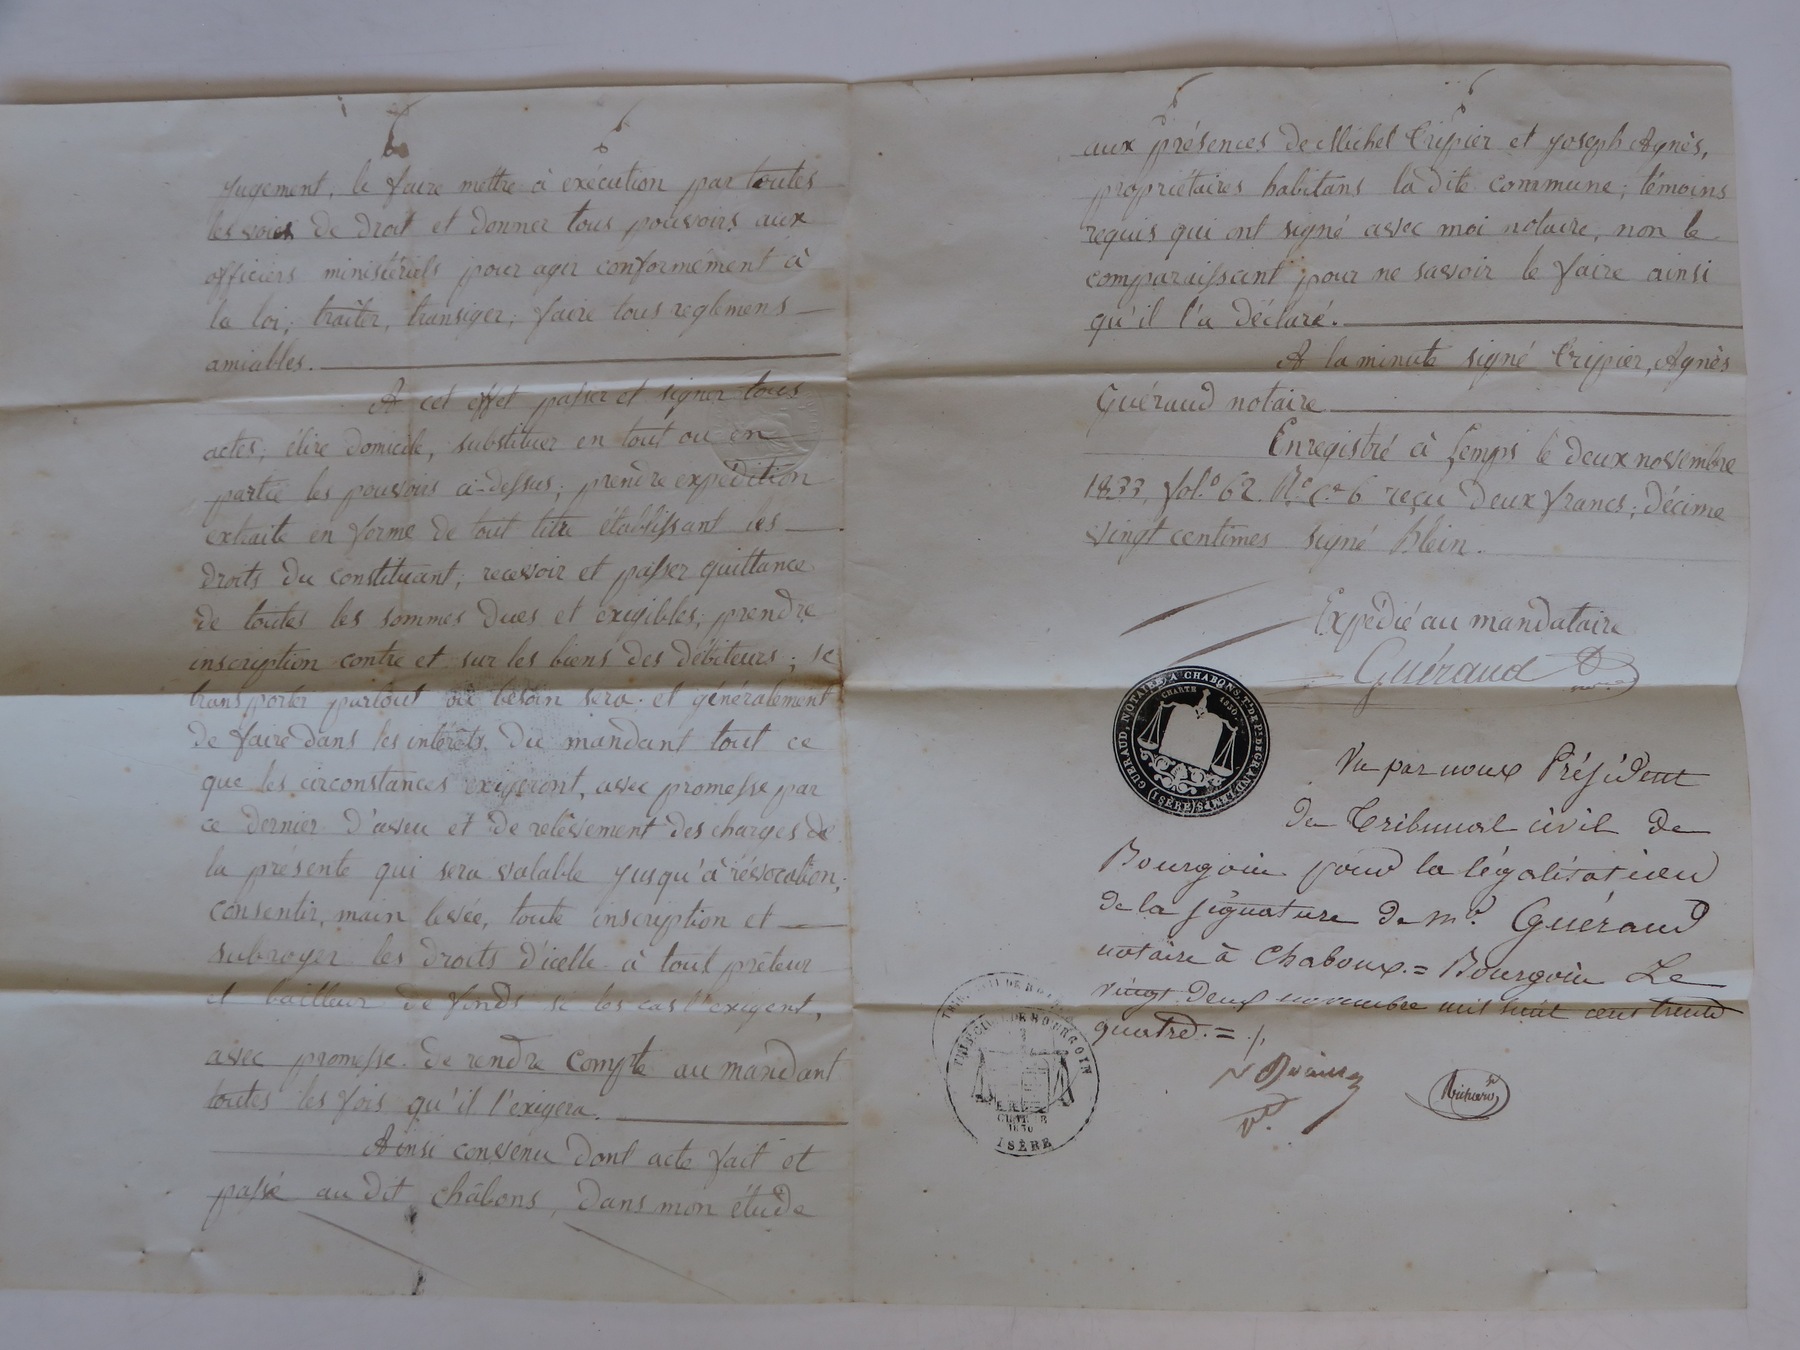 jugement, le faire mettre à exécution par toutes
les voies de droit et donner tous pouvoirs aux
officiers ministériels pour agir conformément à
la loi; traiter, transiger, faire tous reglemens
amiables.
A cet effet passer et signer tous
actes, élire domicile, substituer en tout ou en
partie les pouvoirs ci-dessus; prendre expédition
extraite en forme de tout titre établissant les
droits du constituant; recevoir et passer quittance
de toutes les sommes dues et exigibles; prendre
inscription contre et sur les biens des débiteurs; se
transporter partout où besoin sera. et généralement
de faire dans les intérêts du mandant tout ce
que les circonstances exigeront, avec promesse par
ce dernier d'aveu et de relèvement des charges de
la présente qui sera valable jusqu'à révocation;
consentir, main levée, toute inscription et
subroger les droits d'icelle à tout prêteur
et bailleur de fonds si les cas l'exigent,
avec promesse de rendre compte au mandant
toutes les fois qu'il l'exigera.
Ainsi convenu dont acte fait et
passé au dit châbons, dans mon étude
aux présences de Michel Tripier et Joseph Agnès,
propriétaires habitans la dite commune; témoins
requis qui ont signé avec moi notaire, non le
comparaissant pour ne savoir le faire ainsi
qu'il l'a déclaré.
A la minute signé Tripier, Agnès
Guéraud notaire
Enregistré à Lemps le deux novembre
1833, fol.° 62 R.° c.e 6 reçu deux francs; décime
vingt centimes signé Blein.
Expédié au mandataire
Guéraud
GUERAUD, NOTAIRE A CHABONS, T.n DE P.x DE GRAND LEMPS (ISÈRE)
CHARTE 1830
Vu par nous Président
du Tribunal civil de
Bourgoin pour la légalisation
de la signature de M.e Guéraud
notaire à Chabons. = Bourgoin Le
vingt deux novembre mil huit cent trente
quatre. =
TRIB. CIVIL DE BOURGOIN
CHARTE
1830
ISÈRE